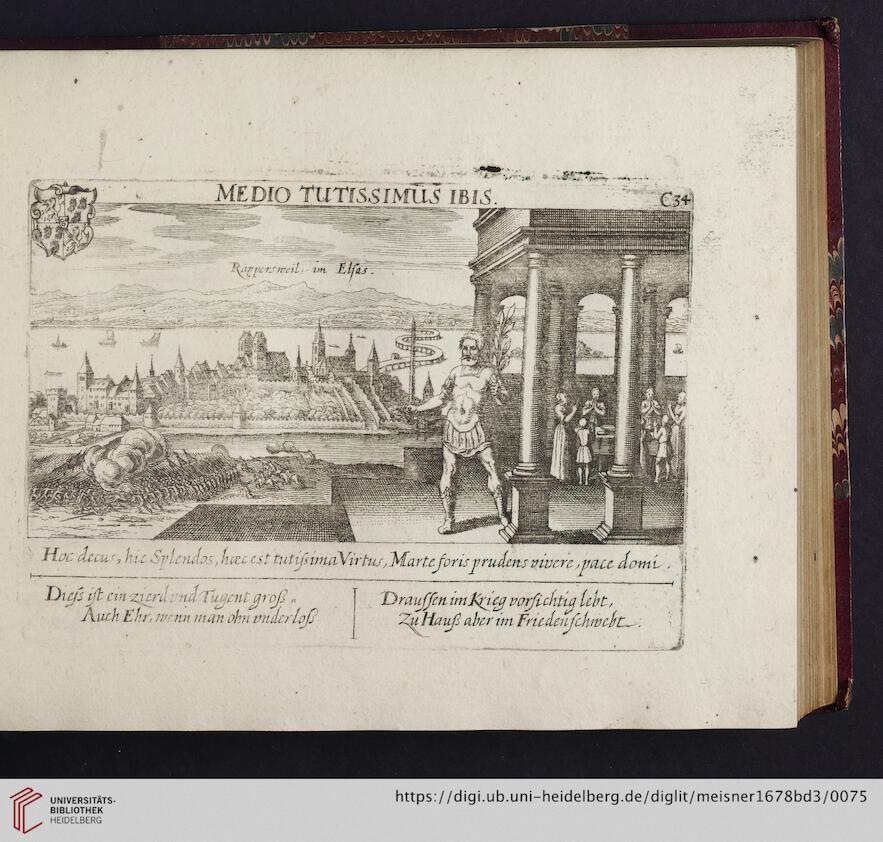 MEDIO TUTISSIMUS IBIS.
C34
Rappersweil. im Elsas.
Hoc decus, hic Splendos, hæc est tutißima Virtus, Marte foris prudens vivere, pace domi.
Diess ist ein zierd vnd Tugent groß,
Auch Ehr, wenn man ohn vnderloß
Draussen im Krieg vorsichtig lebt,
Zu Hauß aber im Frieden schwebt.
UNIVERSITÄTS-
BIBLIOTHEK
HEIDELBERG
https://digi.ub.uni-heidelberg.de/diglit/meisner1678bd3/0075